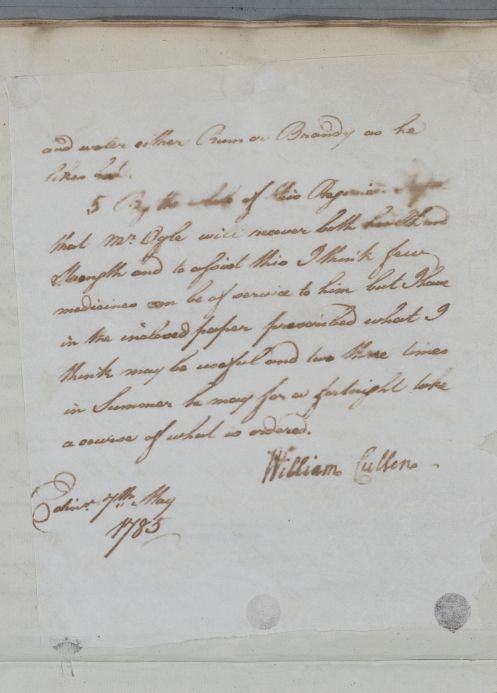 and water either Rum or Brandy as he
likes best.
5 By the whole of this Regimen I hope
that Mr. Ogle will recover both health and
Strength and to assist this I think few
medicines can be of service to him but I have
in the inclosed paper prescribed what I
think may be useful and two three times
in Summer he may for a fortnight take
a course of what is ordered.
William Cullen
Edinr. 7th. May
1785